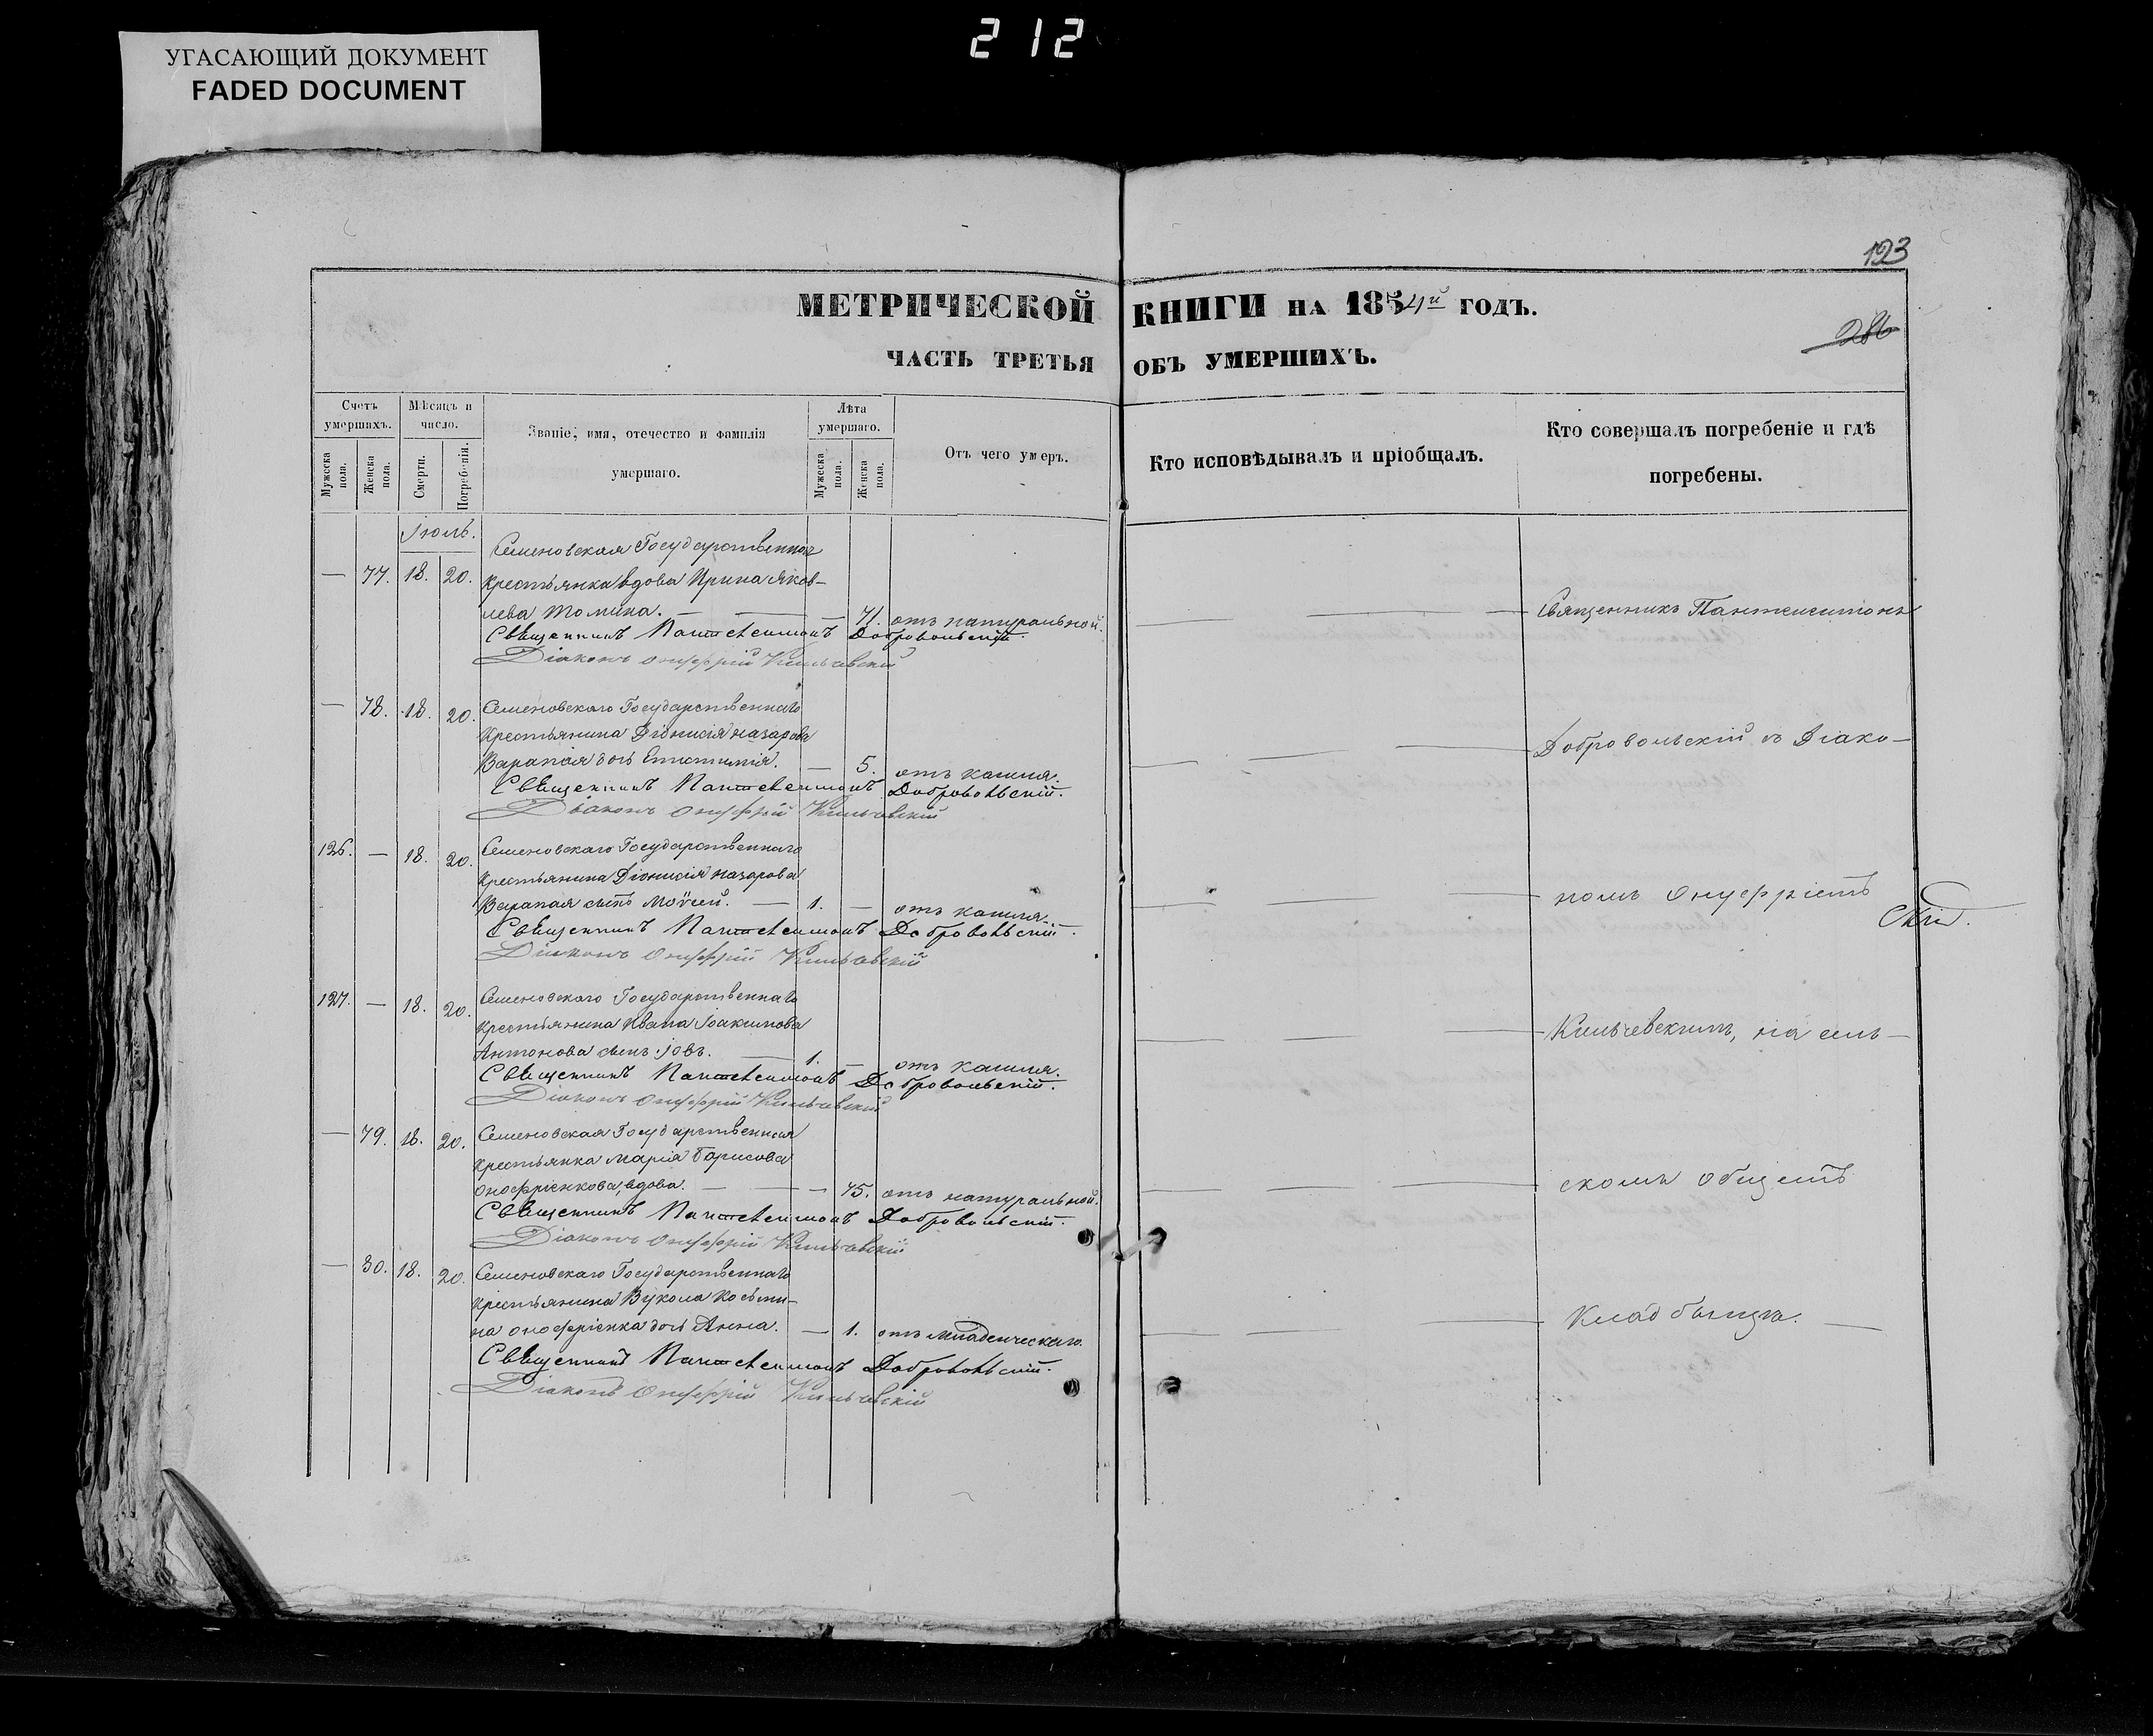 212
УГАСАЮЩИЙ ДОКУМЕНТ
FADED DOCUMENT
123
МЕТРИЧЕСКОЙ КНИГИ НА 1854й ГОДЪ.
286
ЧАСТЬ ТРЕТЬЯ ОБЪ УМЕРШИХЪ.
Счетъ умершихъ.
Мѣсяцъ и число.
Званіе, имя, отечество и фамилія умершаго.
Лѣта умершаго.
Отъ чего умеръ.
Кто исповѣдывалъ и пріобщалъ.
Кто совершалъ погребеніе и гдѣ погребены.
Мужеска пола.
Женска пола.
Смерти.
Погребенія.
Мужеска пола.
Женска пола.
Іюль.
Семеновская Государственная
— 77. 18. 20. крестьянка вдова Ирина Яков-
лева Томина. — — — 71. отъ натуральной. — — — Священникъ Пантелеимонъ
Священникъ Пантелеимонъ Добровольскій.
Діаконъ Онуфрій Кильчевскій
— 78. 18. 20. Семеновскаго Государственнаго
крестьянина Діонисія Назарова
Варапая дочь Епистимія. — 5. отъ кашля. — — — Добровольскій съ Діако-
Священникъ Пантелеимонъ Добровольскій.
Діаконъ Онуфрій Кильчевскій
126. — 18. 20. Семеновскаго Государственнаго
крестьянина Діонисія Назарова
Варапая сынъ Моѵсей. — 1. — отъ кашля. — — — номъ Онуфріемъ
Священникъ Пантелеимонъ Добровольскій.
Діаконъ Онуфрій Кильчевскій
127. — 18. 20. Семеновскаго Государственнаго
крестьянина Ивана Іоакимова
Антонова сынъ Іовъ. — 1. — отъ кашля. — — — Кильчевскимъ, на сель-
Священникъ Пантелеимонъ Добровольскій.
Діаконъ Онуфрій Кильчевскій
— 79. 18. 20. Семеновская Государственная
крестьянка Марія Борисова
Онофріенкова, вдова. — — 75. отъ натуральной. — — — скомъ общемъ
Священникъ Пантелеимонъ Добровольскій.
Діаконъ Онуфрій Кильчевскій
— 80. 18. 20. Семеновскаго Государственнаго
крестьянина Вукола Косьми-
на Онофріенка дочь Анна. — 1. отъ младенческаго. — — — кладбищѣ. —
Священникъ Пантелеимонъ Добровольскій.
Діаконъ Онуфрій Кильчевскій